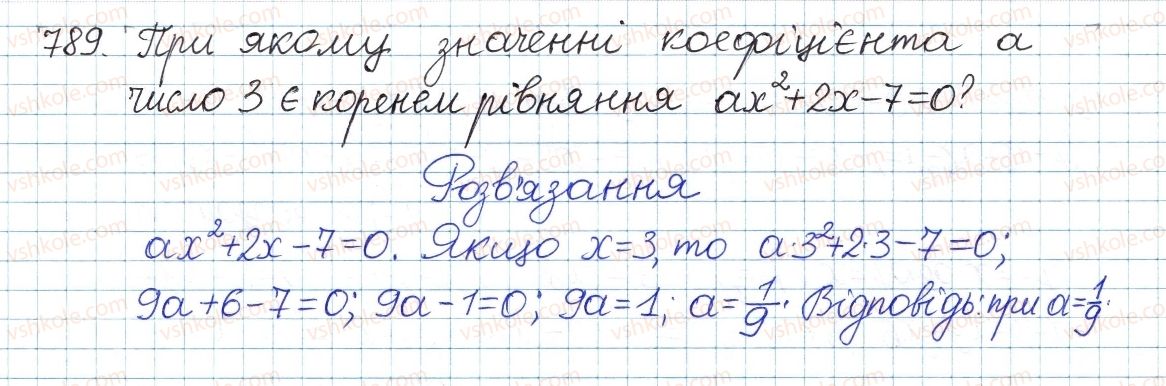 789. При якому значенні коефіцієнта a
число 3 є коренем рівняння ax²+2x-7=0?
Розв'язання
ax²+2x-7=0. Якщо x=3, то a·3²+2·3-7=0;
9a+6-7=0; 9a-1=0; 9a=1; a=1/9. Відповідь: при a=1/9.